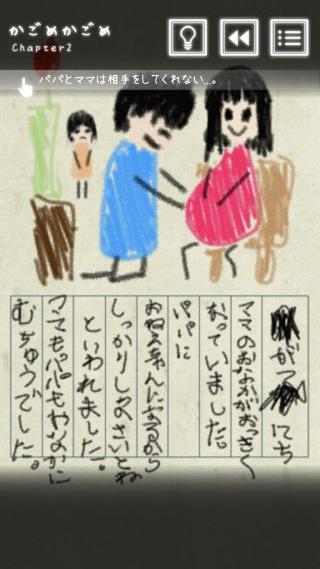 かごめかごめ
Chapter2
パパとママは相手をしてくれない…。
がつ にち
ママのおなかがおっきく
なっていました。
パパに
おねえちゃんになるから
しっかりしなさいとね
といわれました。
ママもパパもおなかに
むちゅうでした。